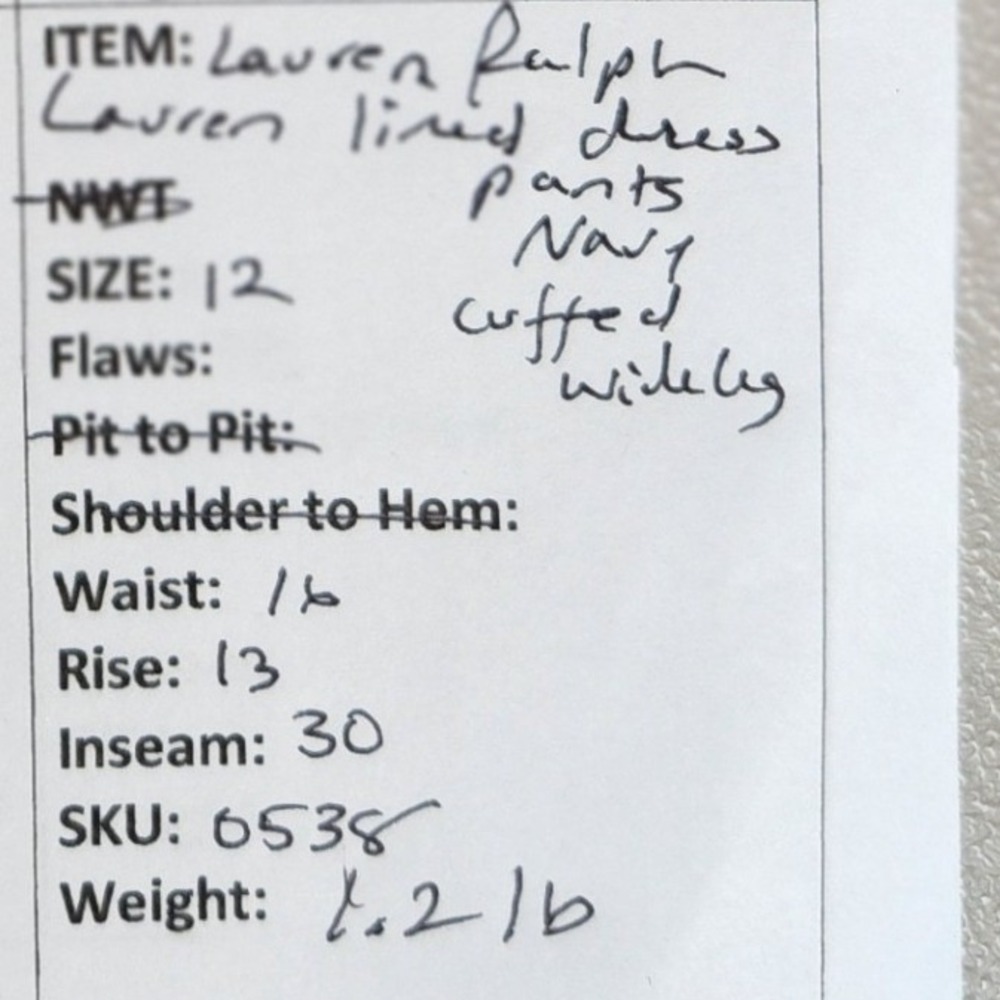 ITEM: Lauren Ralph
Lauren lined dress
pants
NWT
Navy
SIZE: 12
cuffed
Flaws:
wide leg
Pit to Pit:
Shoulder to Hem:
Waist: 16
Rise: 13
Inseam: 30
SKU: 0538
Weight: 1.2 lb